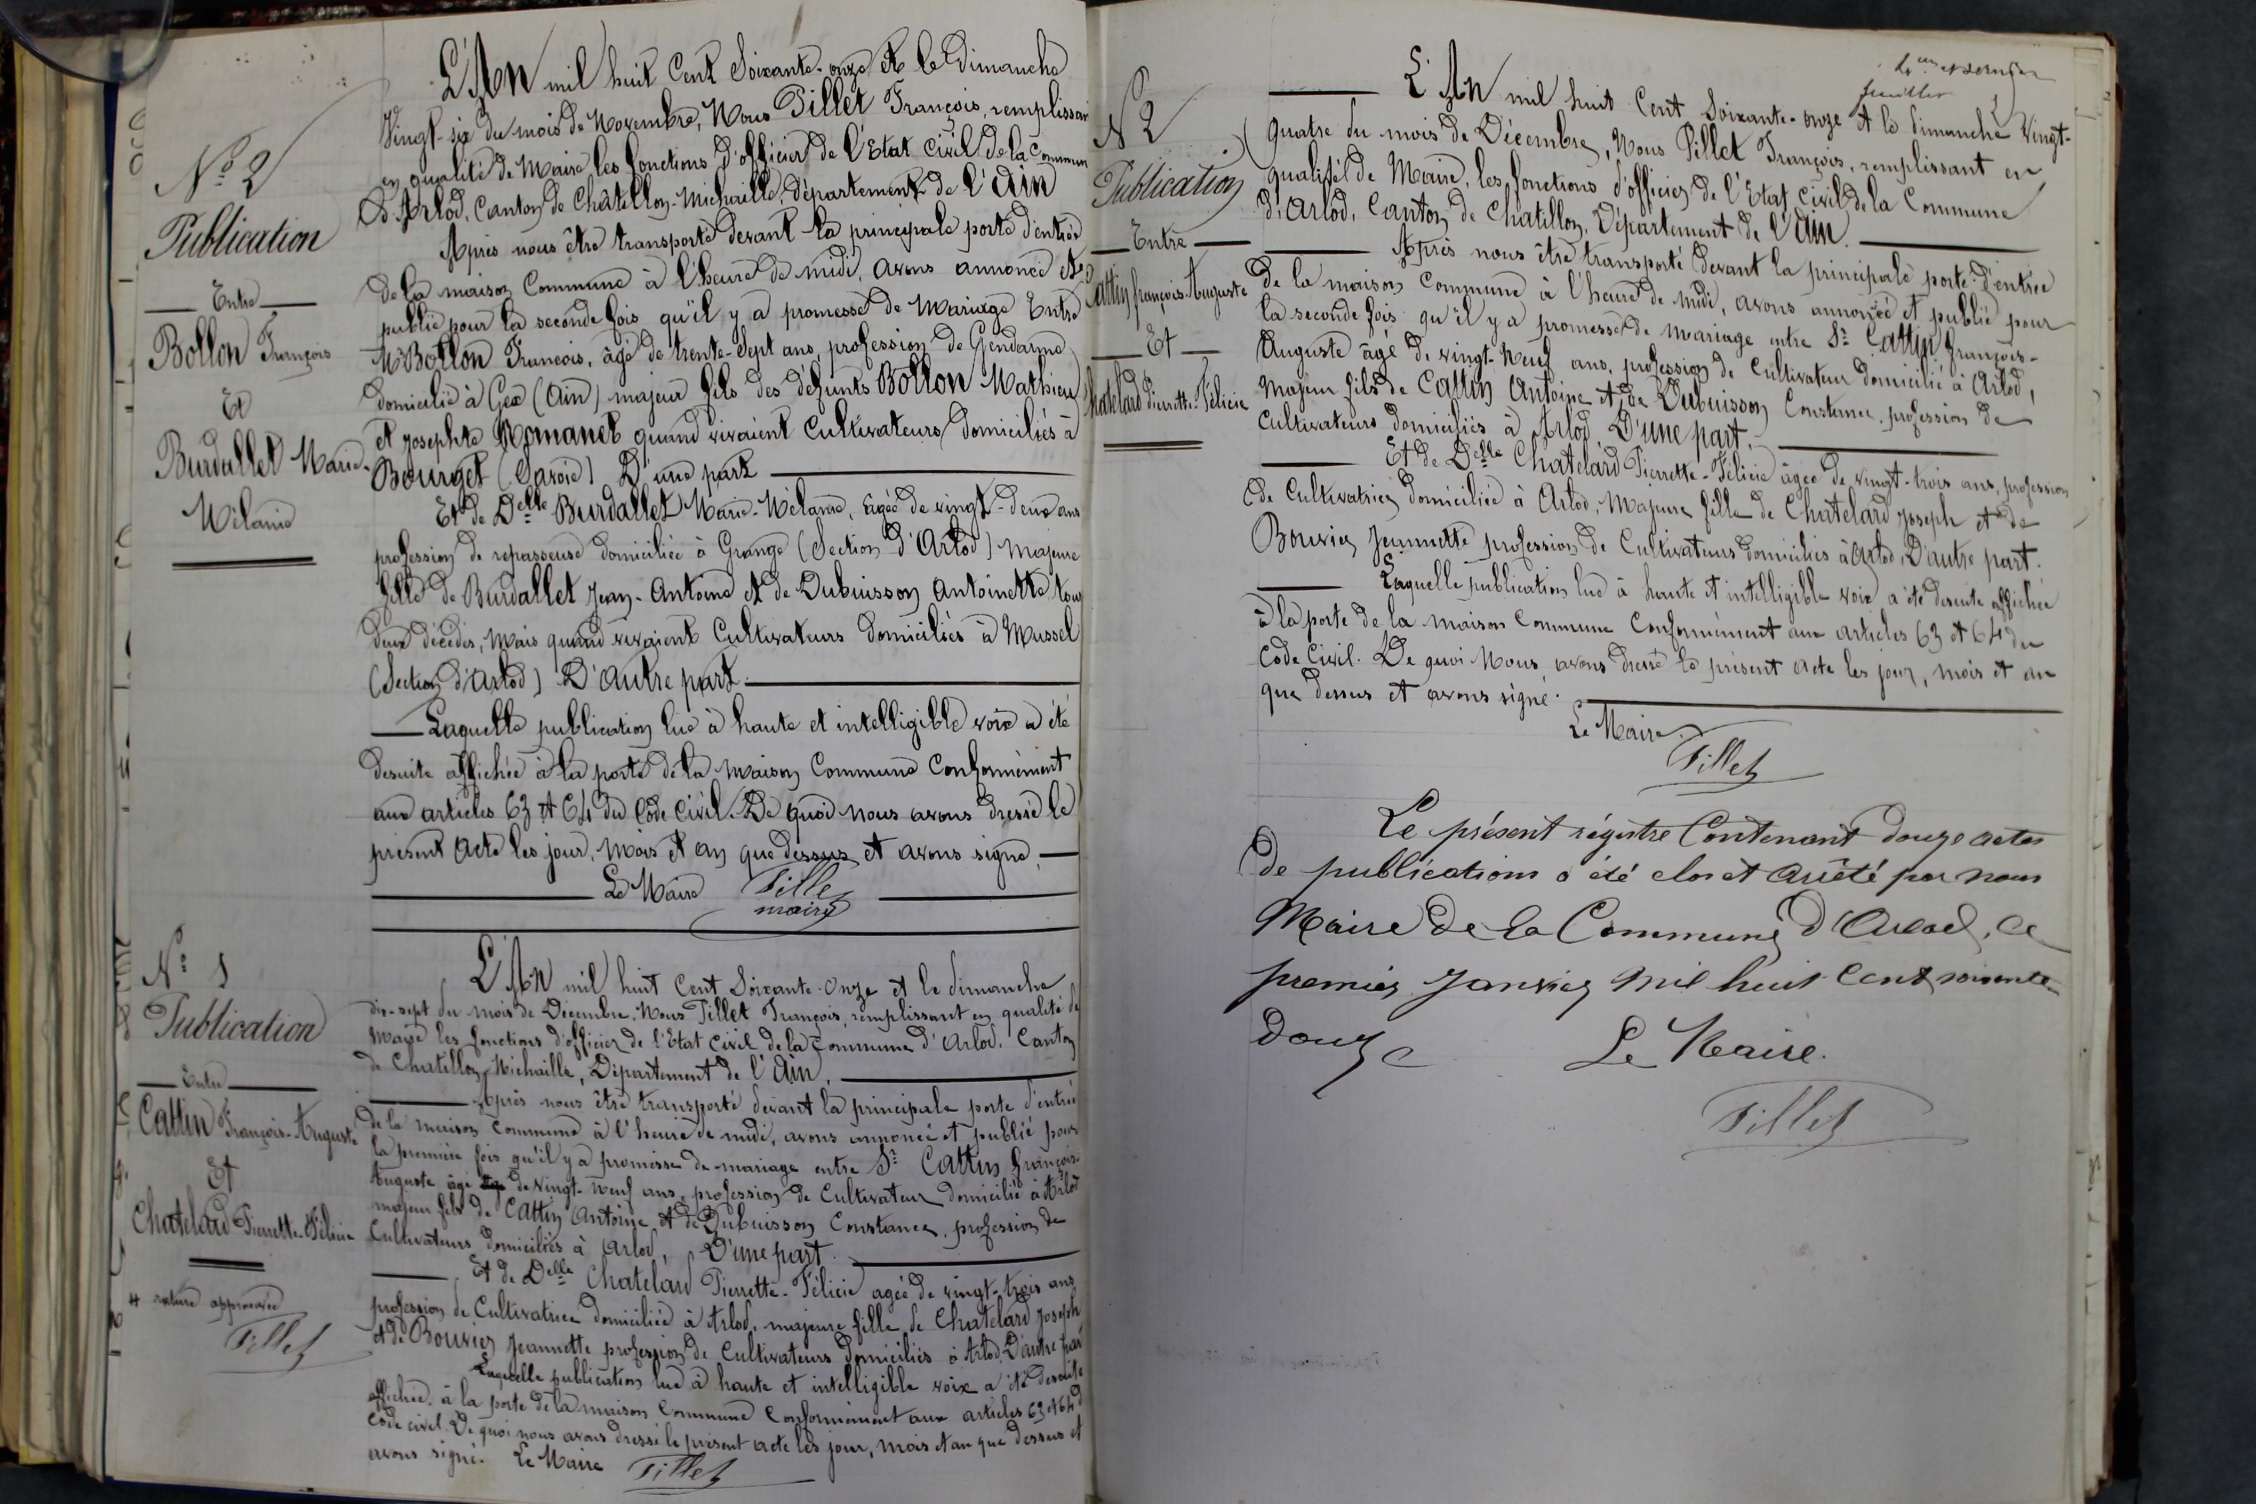 N° 2
Publication
Entre
Bollon François
Et
Burdallet Marie-
Mélanie
L'An mil huit Cent Soixante-onze Et le Dimanche
Vingt-six du mois de Novembre, Nous Pillet François, remplissant
en qualité de Maire les fonctions d'officier de l'Etat civil de la Commune
d'Arlod, Canton de Châtillon-Michaille, département de l'Ain
Après nous être transporté devant la principale porte d'entrée
de la maison Commune à l'heure de midi, avons annoncé et
publié pour la seconde fois qu'il y a promesse de Mariage Entre
Bollon François, âgé de trente-sept ans, profession de Gendarme
domicilié à Gex (Ain) majeur fils des défunts Bollon Mathieu
et Josephte Romanet quand vivaient Cultivateurs domiciliés à
Bourget (Savoie) D'une part
Et de Delle Burdallet Marie-Mélanie, âgée de vingt-deux ans
profession de repasseuse domiciliée à Grange (Section d'Arlod) Majeure
fille de Burdallet Jean-Antoine et de Dubuisson Antoinette tous
deux décédés, Mais quand vivaient Cultivateurs domiciliés à Mussel
(Section d'Arlod) D'Autre part.
Laquelle publication lue à haute et intelligible voix a été
desuite affichée à la porte de la Maison Commune Conformément
aux articles 63 et 64 du Code Civil. De quoi nous avons dressé le
présent Acte les jour, Mois et an que dessus et avons signé.
Le Maire Pillet
maire
N° 1
Publication
Entre
Cattin François-Auguste
Et
Chatelard Pierrette-Félicie
rature approuvée
Pillet
L'An mil huit Cent Soixante-Onze et le dimanche
dix-sept du mois de Décembre, Nous Pillet François, remplissant en qualité de
Maire les fonctions d'officier de l'Etat Civil de la Commune d'Arlod, Canton
de Chatillon Michaille, Département de l'Ain,
Après nous être transporté devant la principale porte d'entrée
de la maison Commune à l'heure de midi, avons annoncé et publié pour
la première fois qu'il y a promesse de mariage entre Sr Cattin François-
Auguste âgé de vingt-neuf ans, profession de Cultivateur domicilié à Arlod
majeur fils de Cattin Antoine et de Dubuisson Constance, profession de
Cultivateurs domiciliés à Arlod, D'une part.
Et de Delle Chatelard Pierrette-Félicie agée de vingt-trois ans
profession de Cultivatrice domiciliée à Arlod, majeure fille de Chatelard Joseph
et de Bouvier Jeannette profession de Cultivateurs domiciliés à Arlod, D'autre part
Laquelle publication lue à haute et intelligible voix a été desuite
affichée à la porte de la maison Commune Conformément aux articles 63 et 64 d
Code civil. De quoi nous avons dressé le présent acte les jour, mois et an que dessus et
avons signé. Le Maire Pillet
et dernier
feuillet
N° 2
Publication
Entre
Cattin François-Auguste
Et
Chatelard Pierrette-Félicie
L'An mil huit Cent Soixante-onze Et le dimanche Vingt-
quatre du mois de Décembre, Nous Pillet François, remplissant en
qualité de Maire, les fonctions d'officier de l'Etat Civil de la Commune
d'Arlod, Canton de Chatillon, Département de l'Ain.
Après nous être transporté devant la principale porte d'entrée
de la maison Commune à l'heure de midi, avons annoncé et publié pour
la seconde fois qu'il y a promesse de mariage entre Sr Cattin François-
Auguste âgé de vingt-neuf ans, profession de Cultivateur domicilié à Arlod,
Majeur fils de Cattin Antoine et de Dubuisson Constance, profession de
Cultivateurs domiciliés à Arlod, D'une part.
Et de Delle Chatelard Pierrette-Félicie âgée de vingt-trois ans, profession
de Cultivatrice domiciliée à Arlod, Majeure fille de Chatelard Joseph et de
Bouvier Jeannette profession de Cultivateurs domiciliés à Arlod, D'autre part.
Laquelle publication lue à haute et intelligible voix a été desuite affichée
à la porte de la maison Commune Conformément aux articles 63 et 64 du
Code Civil. De quoi Nous avons dressé le présent Acte les jour, mois et an
que dessus et avons signé.
Le Maire
Pillet
Le présent régistre Contenant douze actes
de publications a été clos et arrêté par nous
Maire de la Commune d'Arlod, ce
premier Janvier Mil huit Cent soixante-
Douze
Le Maire.
Pillet